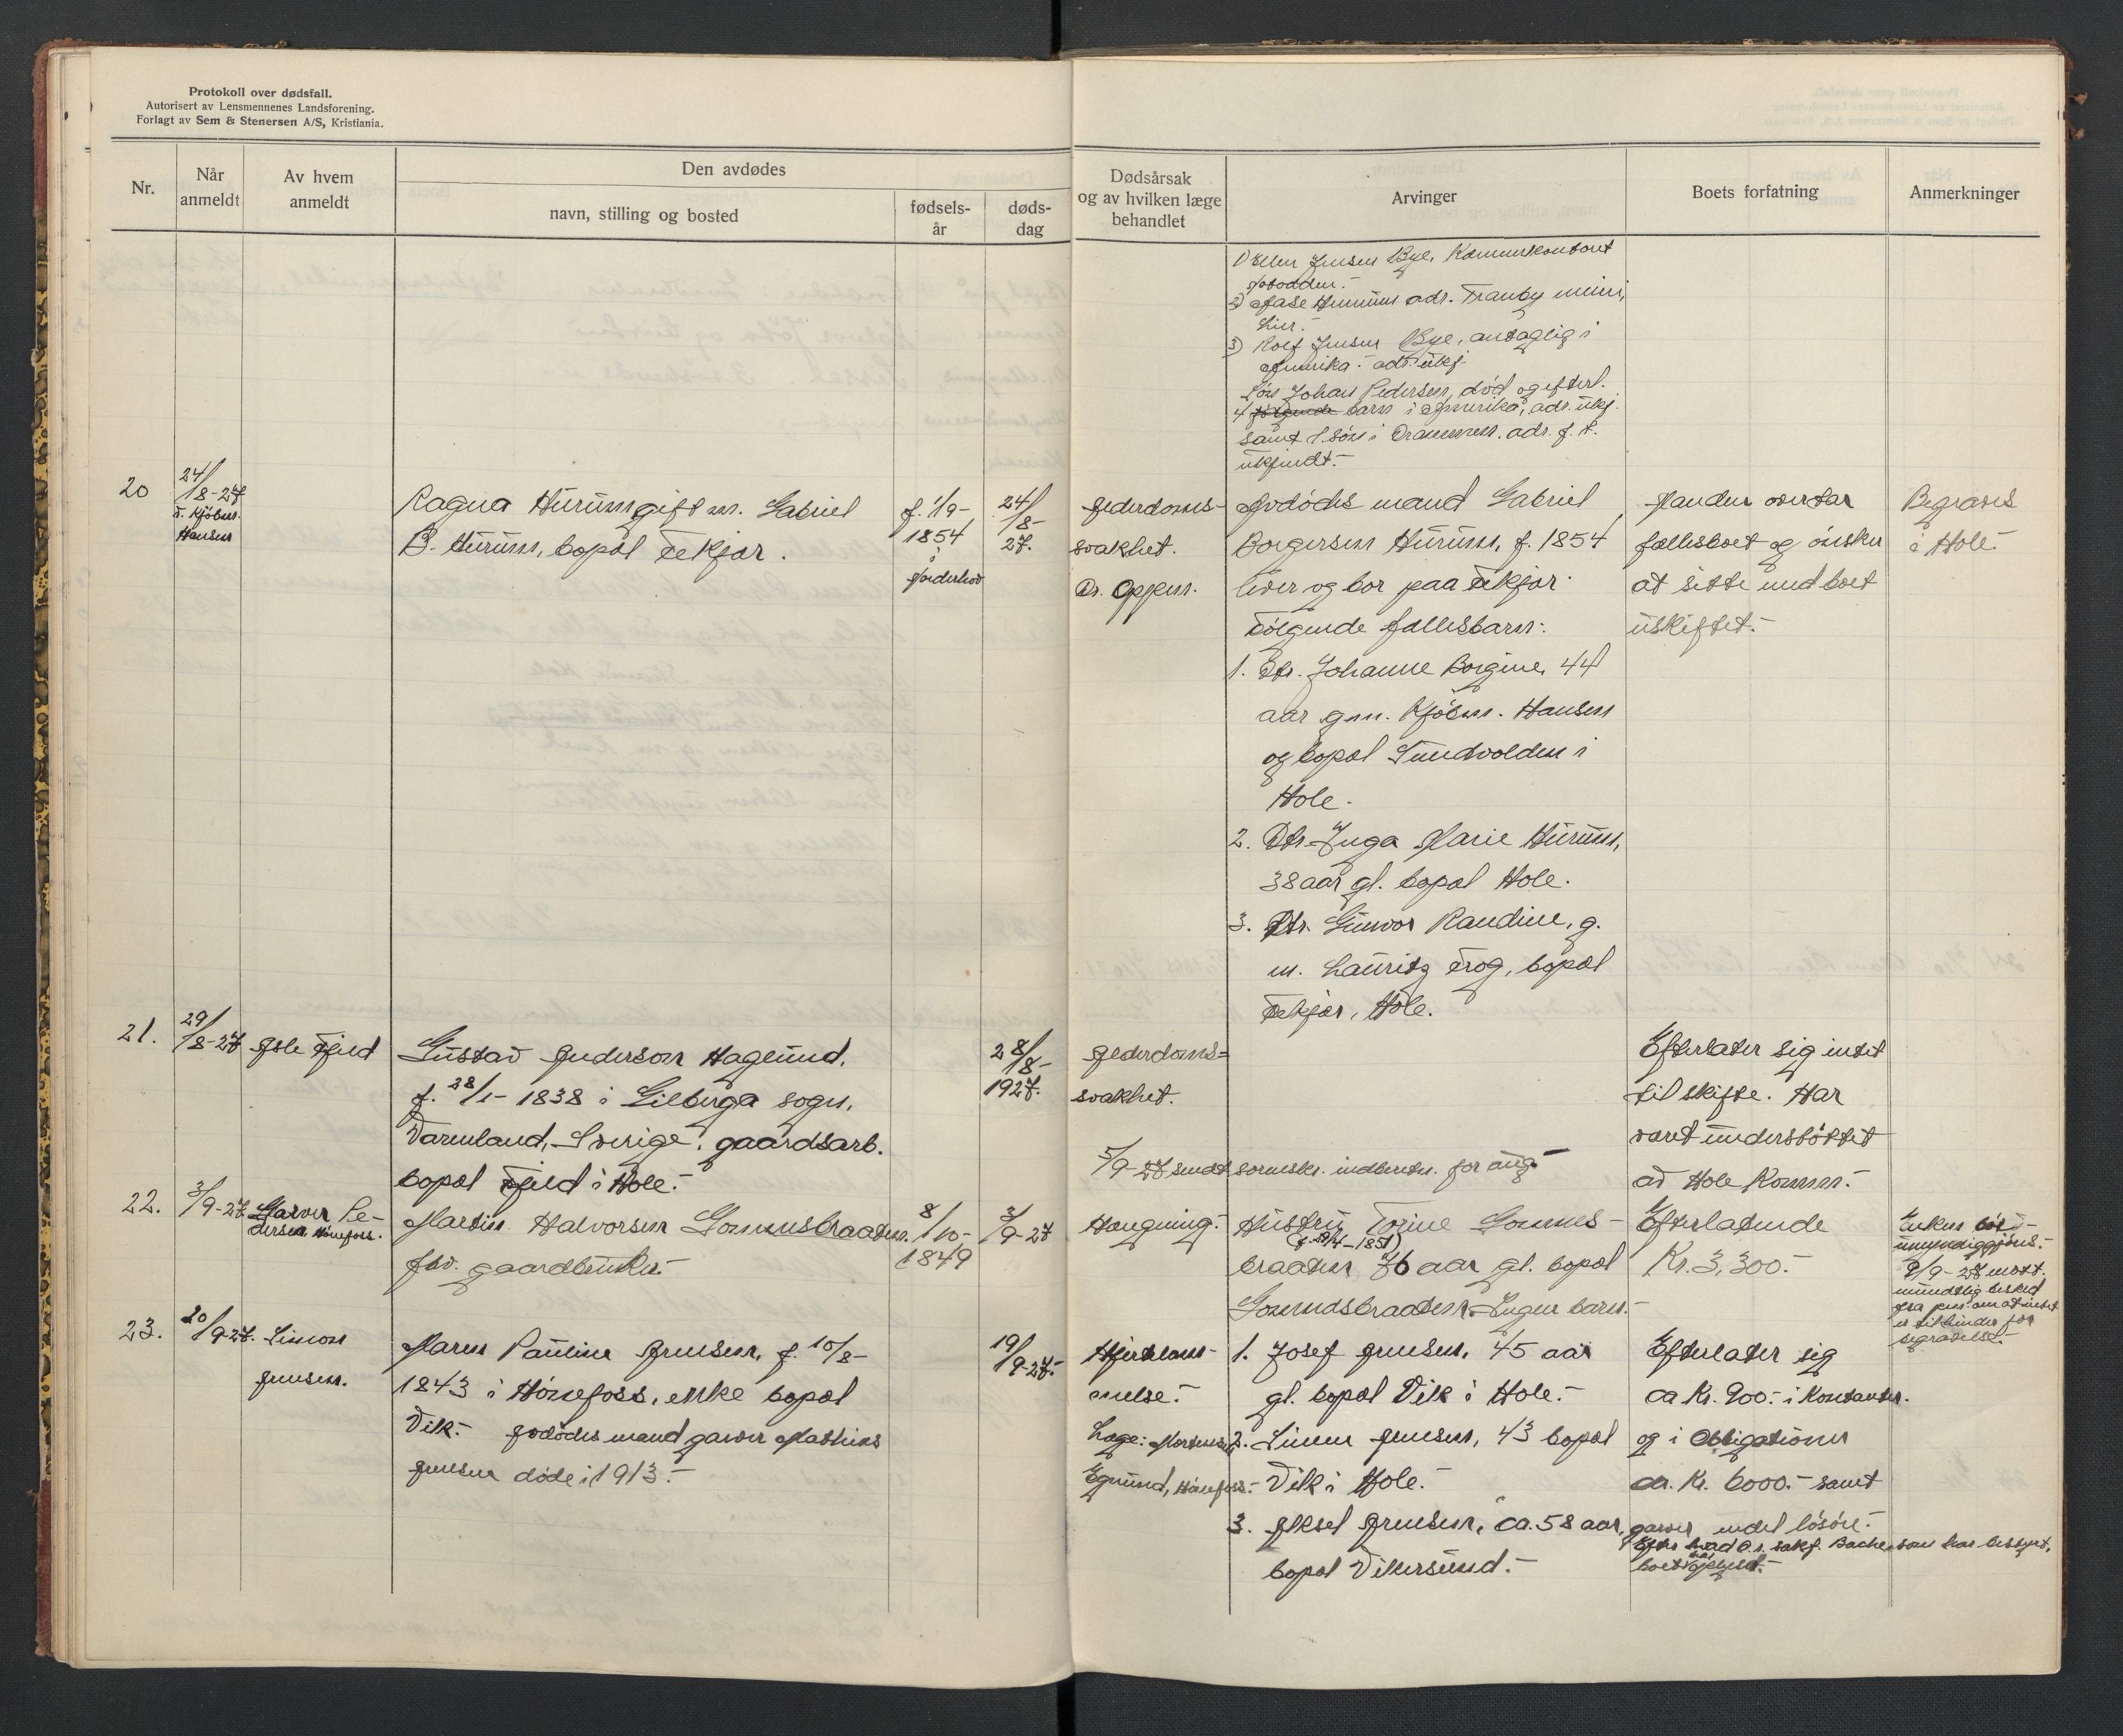 Protokoll over dødsfall.
Autorisert av Lensmennenes Landsforening.
Forlagt av Sem & Stenersen A/S, Kristiania.
Nr.
Når anmeldt
Av hvem anmeldt
Den avdødes
navn, stilling og bosted
fødsels-år
døds-dag
Dødsårsak og av hvilken læge behandlet
Arvinger
Boets forfatning
Anmerkninger
1) Ellen Jensen Bye, Kæmnerkontoret
2) Aase Hennum adr. Tranby meieri,
Lier.-
3) Rolf Jensen Bye, antaglig i
Amerika.- adr. ukj.
Søn Johan Pedersen, død og efterl.
4 følgende barn i Amerika, adr. ukj.
samt 1 søn i Drammen. adr. f. t.
ukjendt.-
20
24/8-27
v. Kjöbm.
Hansen
Ragna Hurum gift m. Gabriel
B. Hurum, bopæl Fekjær.
f. 1/9-
1854
i
Norderhov
24/8-
27.
Alderdoms-
svakhet.
Dr. Oppen.
Avdödes mand Gabriel
Borgersen Hurum, f. 1854
lever og bor paa Fekjær.
Følgende fællesbarn:
1. Dtr. Johanne Borgine, 44
aar g.m. Kjöbm. Hansen
og bopæl Sundvolden i
Hole.
2. Dtr. Inga Marie Hurum,
38 aar gl. bopæl Hole.
3. Dtr. Gunvor Randine, g.
m. Lauritz Frog, bopæl
Fekjær, Hole.
Manden overtar
fællesboet og önsker
at sitte med boet
uskiftet.-
Begraves
i Hole.-
21.
29/8-27
Asle Fjeld
Gustav Anderson Haglund,
f. 28/1-1838 i Gilberga sogn,
Värmland, Sverige, gaardsarb.
bopæl Fjeld i Hole.-
28/8-
1927.
Alderdoms-
svakhet.
Efterlater sig intet
til skifte. Har
været understöttet
av Hole Komm.-
5/9-27 sendt sorenskr. indberetn. for aug.-
22.
3/9-27
Garver Pe-
dersen Hönefoss.
Martin Halvorsen Gomnesbraaten.
fhv. gaardbruker.-
8/10-
1849
3/9-27
Hængning.-
Hustru Torine Gomnes-
(f. 29/4-1851)
braaten 76 aar gl. bopæl
Gomnesbraaten. Ingen barn.-
Efterlatende
Kr. 3,300.-
Enken bör
umyndiggjöres.-
9/9-27 mott.
mundtlig besked
fra pm. om at intet
er til hinder for
begravelse.-
23.
20/9-27.
Simon
Jensen.
Maren Pauline Jensen, f. 10/8-
1843 i Hönefoss, enke bopæl
Vik.- Avdödes mand garver Mathias
Jensen döde i 1913.-
19/9-27.-
Hjertelam-
melse.-
Læge: Mortensen
Egnund, Hönefoss.-
1. Josef Jensen, 45 aar
gl. bopæl Vik i Hole.-
2. Simen Jensen, 43 bopæl
Vik i Hole.-
3. Aksel Jensen, ca. 58 aar, garver
bopæl Vikersund.-
Efterlater sig
ca Kr. 900.- i kontanter.
og i Obligationer
ca. Kr. 6000.- samt
endel lösöre.-
Efter hvad O.r. sakf. Bache som har bestyrt,
boet har oplyst.-